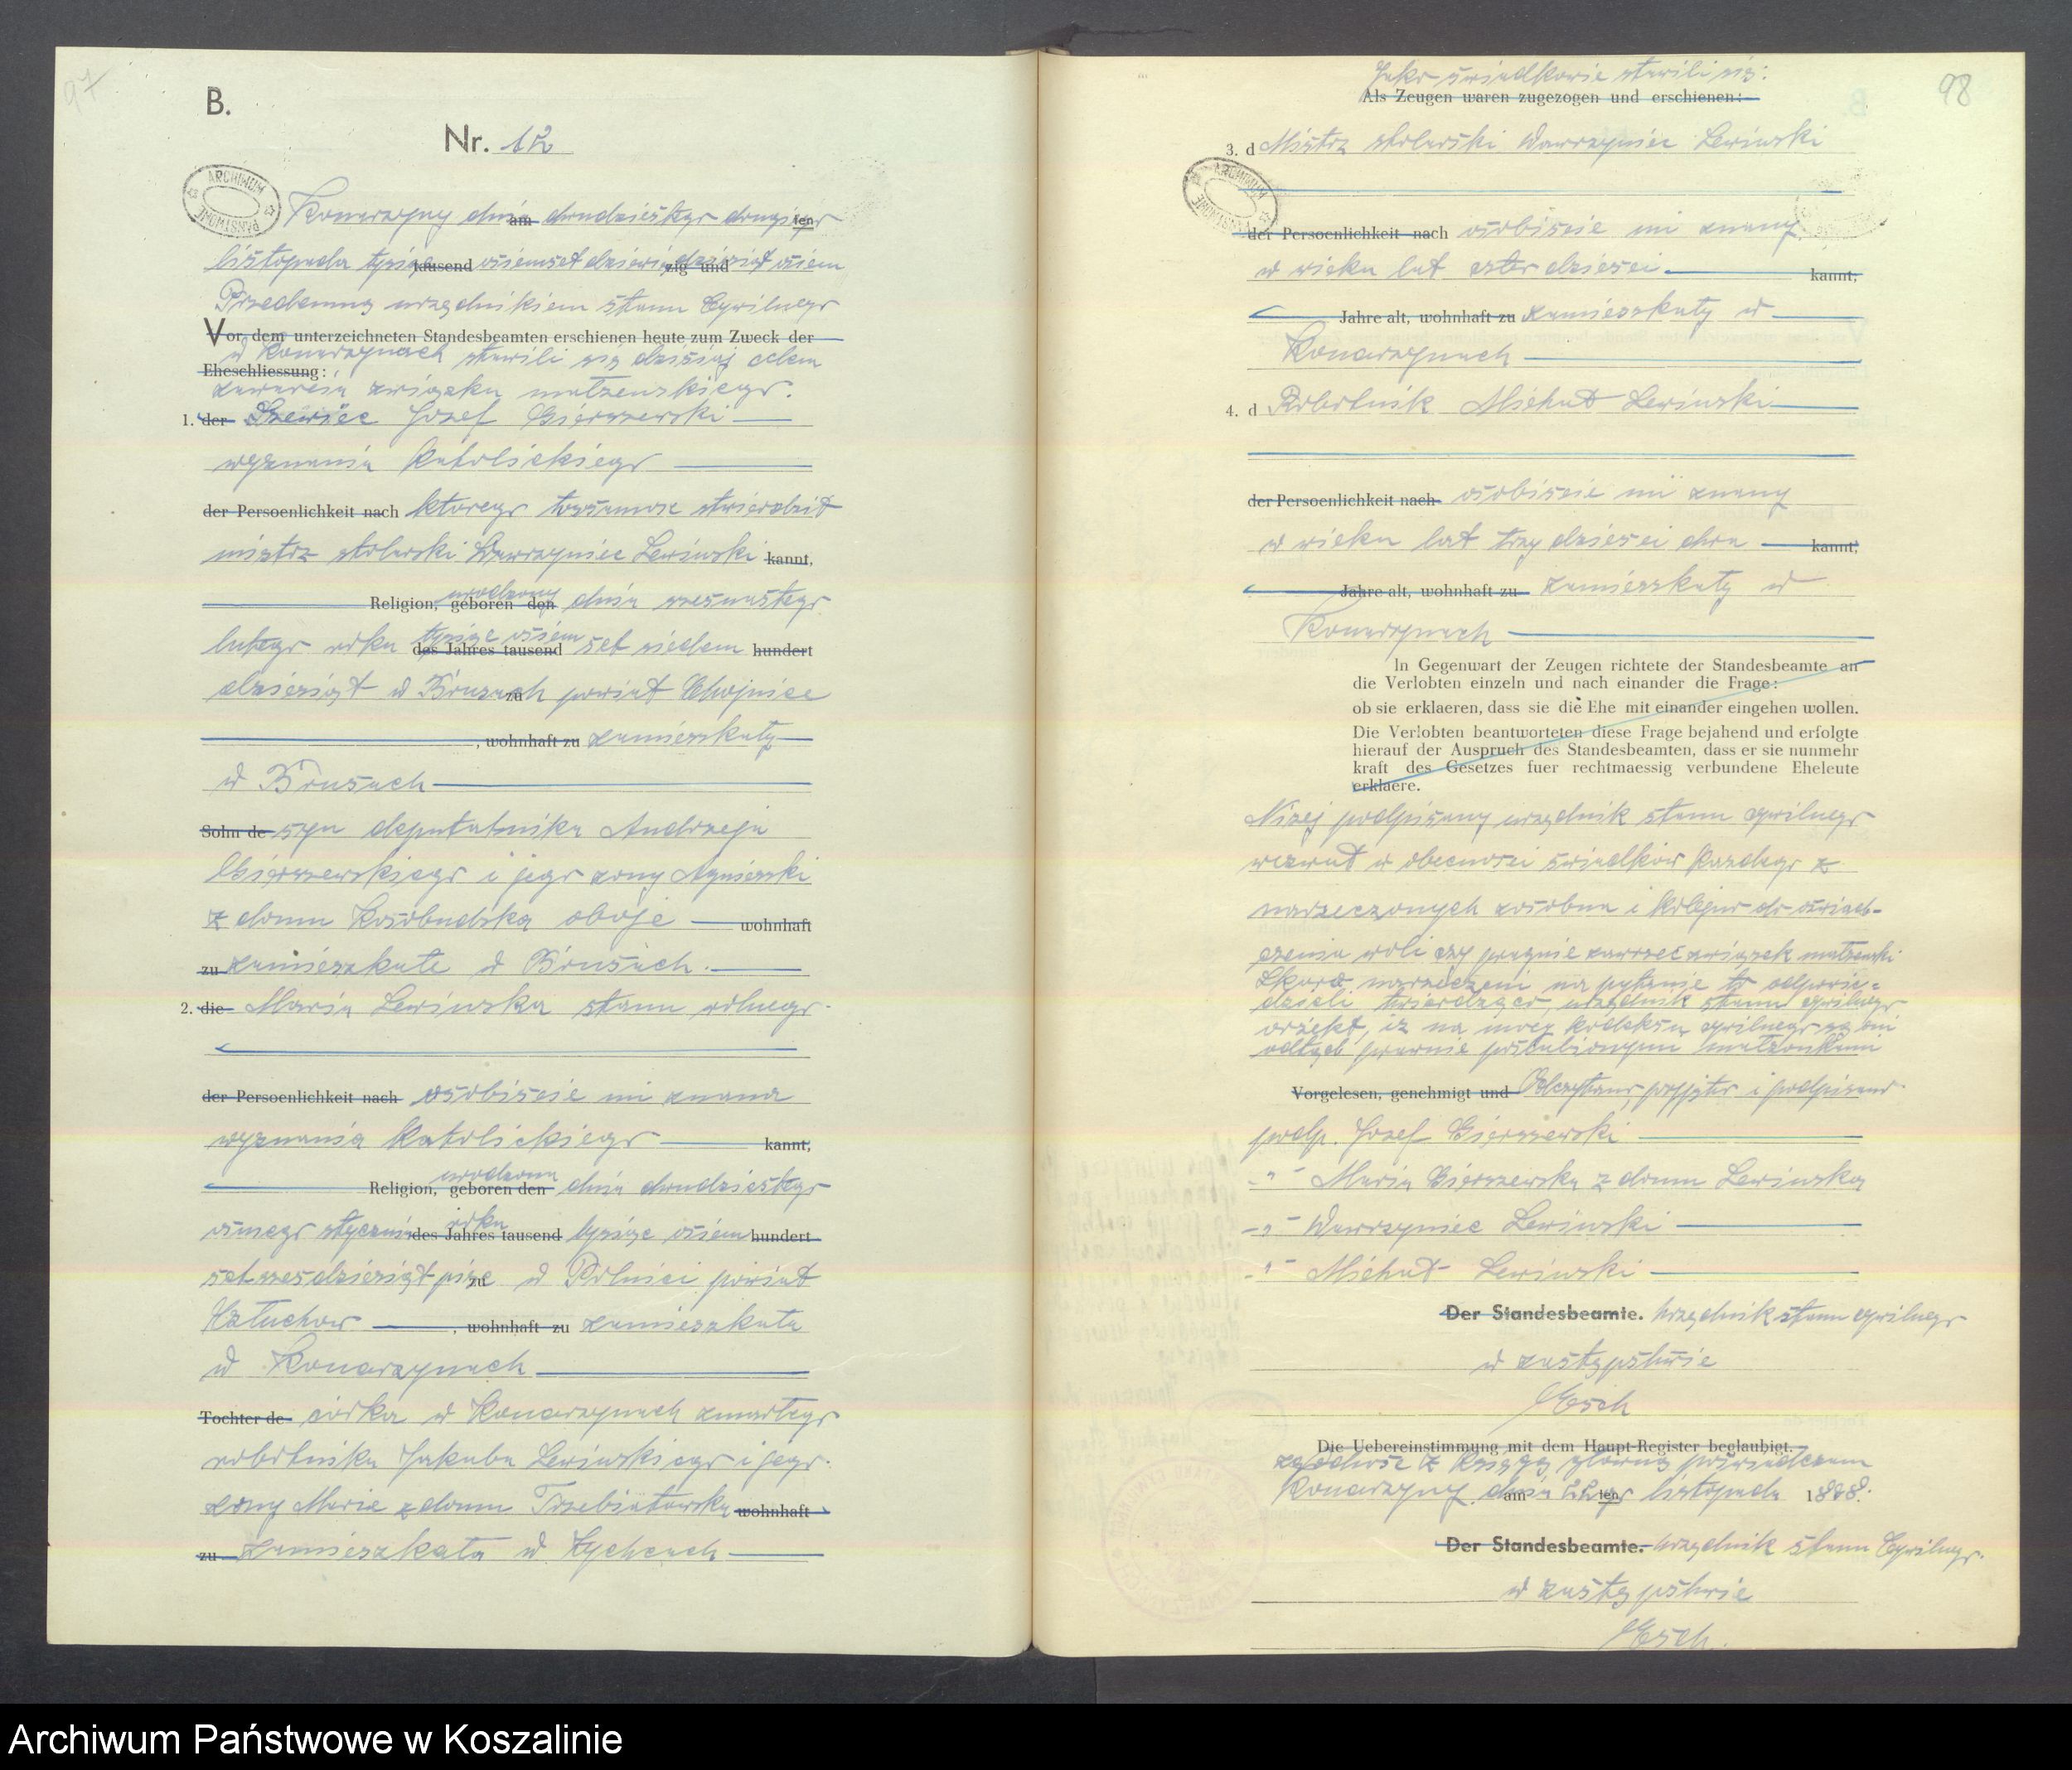 97
B.
Nr. 12
ARCHIWUM PAŃSTWOWE
Konarzyny dnia am dwudziestego drugiego ten
listopada tysiąc tausend osiemset dziewię zig und dziesiąt osiem
Przedemną urzędnikiem stanu Cywilnego
Vor dem unterzeichneten Standesbeamten erschienen heute zum Zweck der
w Konarzynach stawili się dzisiaj celem
Eheschliessung:
zawarcia związku małżenskiego.
1. der Szewiec Jozef Gierszewski
wyznania Katolickiego
der Persoenlichkeit nach ktorego tozsamosc stwierdził
mistrz stolarski Wawrzyniec Lewinski kannt,
urodzony
Religion, geboren den dnia szesnastego
tysiąc osiem
lutego roku des Jahres tausend set siedem hundert
dziesiąt w Brusach zu powiat Chojnice
, wohnhaft zu zamieszkały
w Brusach
Sohn de syn deputatnika Andrzeja
Gierszewskiego i jego zony Agnieszki
z domu Kosobudzka oboje wohnhaft
zu zamieszkałe w Brusach.
2. die Maria Lewinska stanu wolnego
der Persoenlichkeit nach osobiscie mi znana
wyznania Katolickiego kannt,
urodzona
Religion, geboren den dnia dwudziestego
roku
osmego stycznia des Jahres tausend tysiąc osiem hundert
set szesdziesiąt pięc zu w Polnici powiat
Człuchow , wohnhaft zu zamieszkała
w Konarzynach
Tochter de córka w Konarzynach zmarłego
robotnika Jakuba Lewinskiego i jego
zony Marie z domu Trzebiatowska wohnhaft
zu zamieszkała w Zychcach
98
Jako świadkowie stawili się:
Als Zeugen waren zugezogen und erschienen:
3. d Mistrz stolarski Wawrzyniec Lewinski
ARCHIWUM PAŃSTWOWE
der Persoenlichkeit nach osobiscie mi znany
w wieku lat czterdziesci kannt,
Jahre alt, wohnhaft zu zamieszkały w
Konarzynach
4. d Robotnik Michał Lewinski
der Persoenlichkeit nach osobiscie mi znany
w wieku lat trzydziesci dwa kannt,
Jahre alt, wohnhaft zu zamieszkały w
Konarzynach
In Gegenwart der Zeugen richtete der Standesbeamte an
die Verlobten einzeln und nach einander die Frage:
ob sie erklaeren, dass sie die Ehe mit einander eingehen wollen.
Die Verlobten beantworteten diese Frage bejahend und erfolgte
hierauf der Auspruch des Standesbeamten, dass er sie nunmehr
kraft des Gesetzes fuer rechtmaessig verbundene Eheleute
erklaere.
Nizej podpisany urzędnik stanu cywilnego
wezwał w obecnosci świadków Kazdego z
narzeczonych zosobna i Kolejno do oświad-
czenia woli czy pragnie zawrzeć związek małżenski
Skoro narzeczeni na pytanie to odpowie-
dzieli twierdząco, urzędnik stanu cywilnego
orzekł, iz na mocy kodeksu cywilnego są oni
odtąd prawnie poślubionymi małżonkami
Vorgelesen, genehmigt und Odczytano, przyjęto i podpisano
podp. Jozef Gierszewski
-"- Maria Gierszewska z domu Lewinska
-"- Wawrzyniec Lewinski
-"- Michał Lewinski
Der Standesbeamte. Urzędnik stanu cywilnego
w zastępstwie
Esch
Die Uebereinstimmung mit dem Haupt-Register beglaubigt.
zgodnosc z Księgą główną poświadczam
Konarzyny am dnia 22 ten go listopada 1898.
Der Standesbeamte. Urzędnik stanu Cywilnego.
w zastępstwie
Esch.
Archiwum Państwowe w Koszalinie